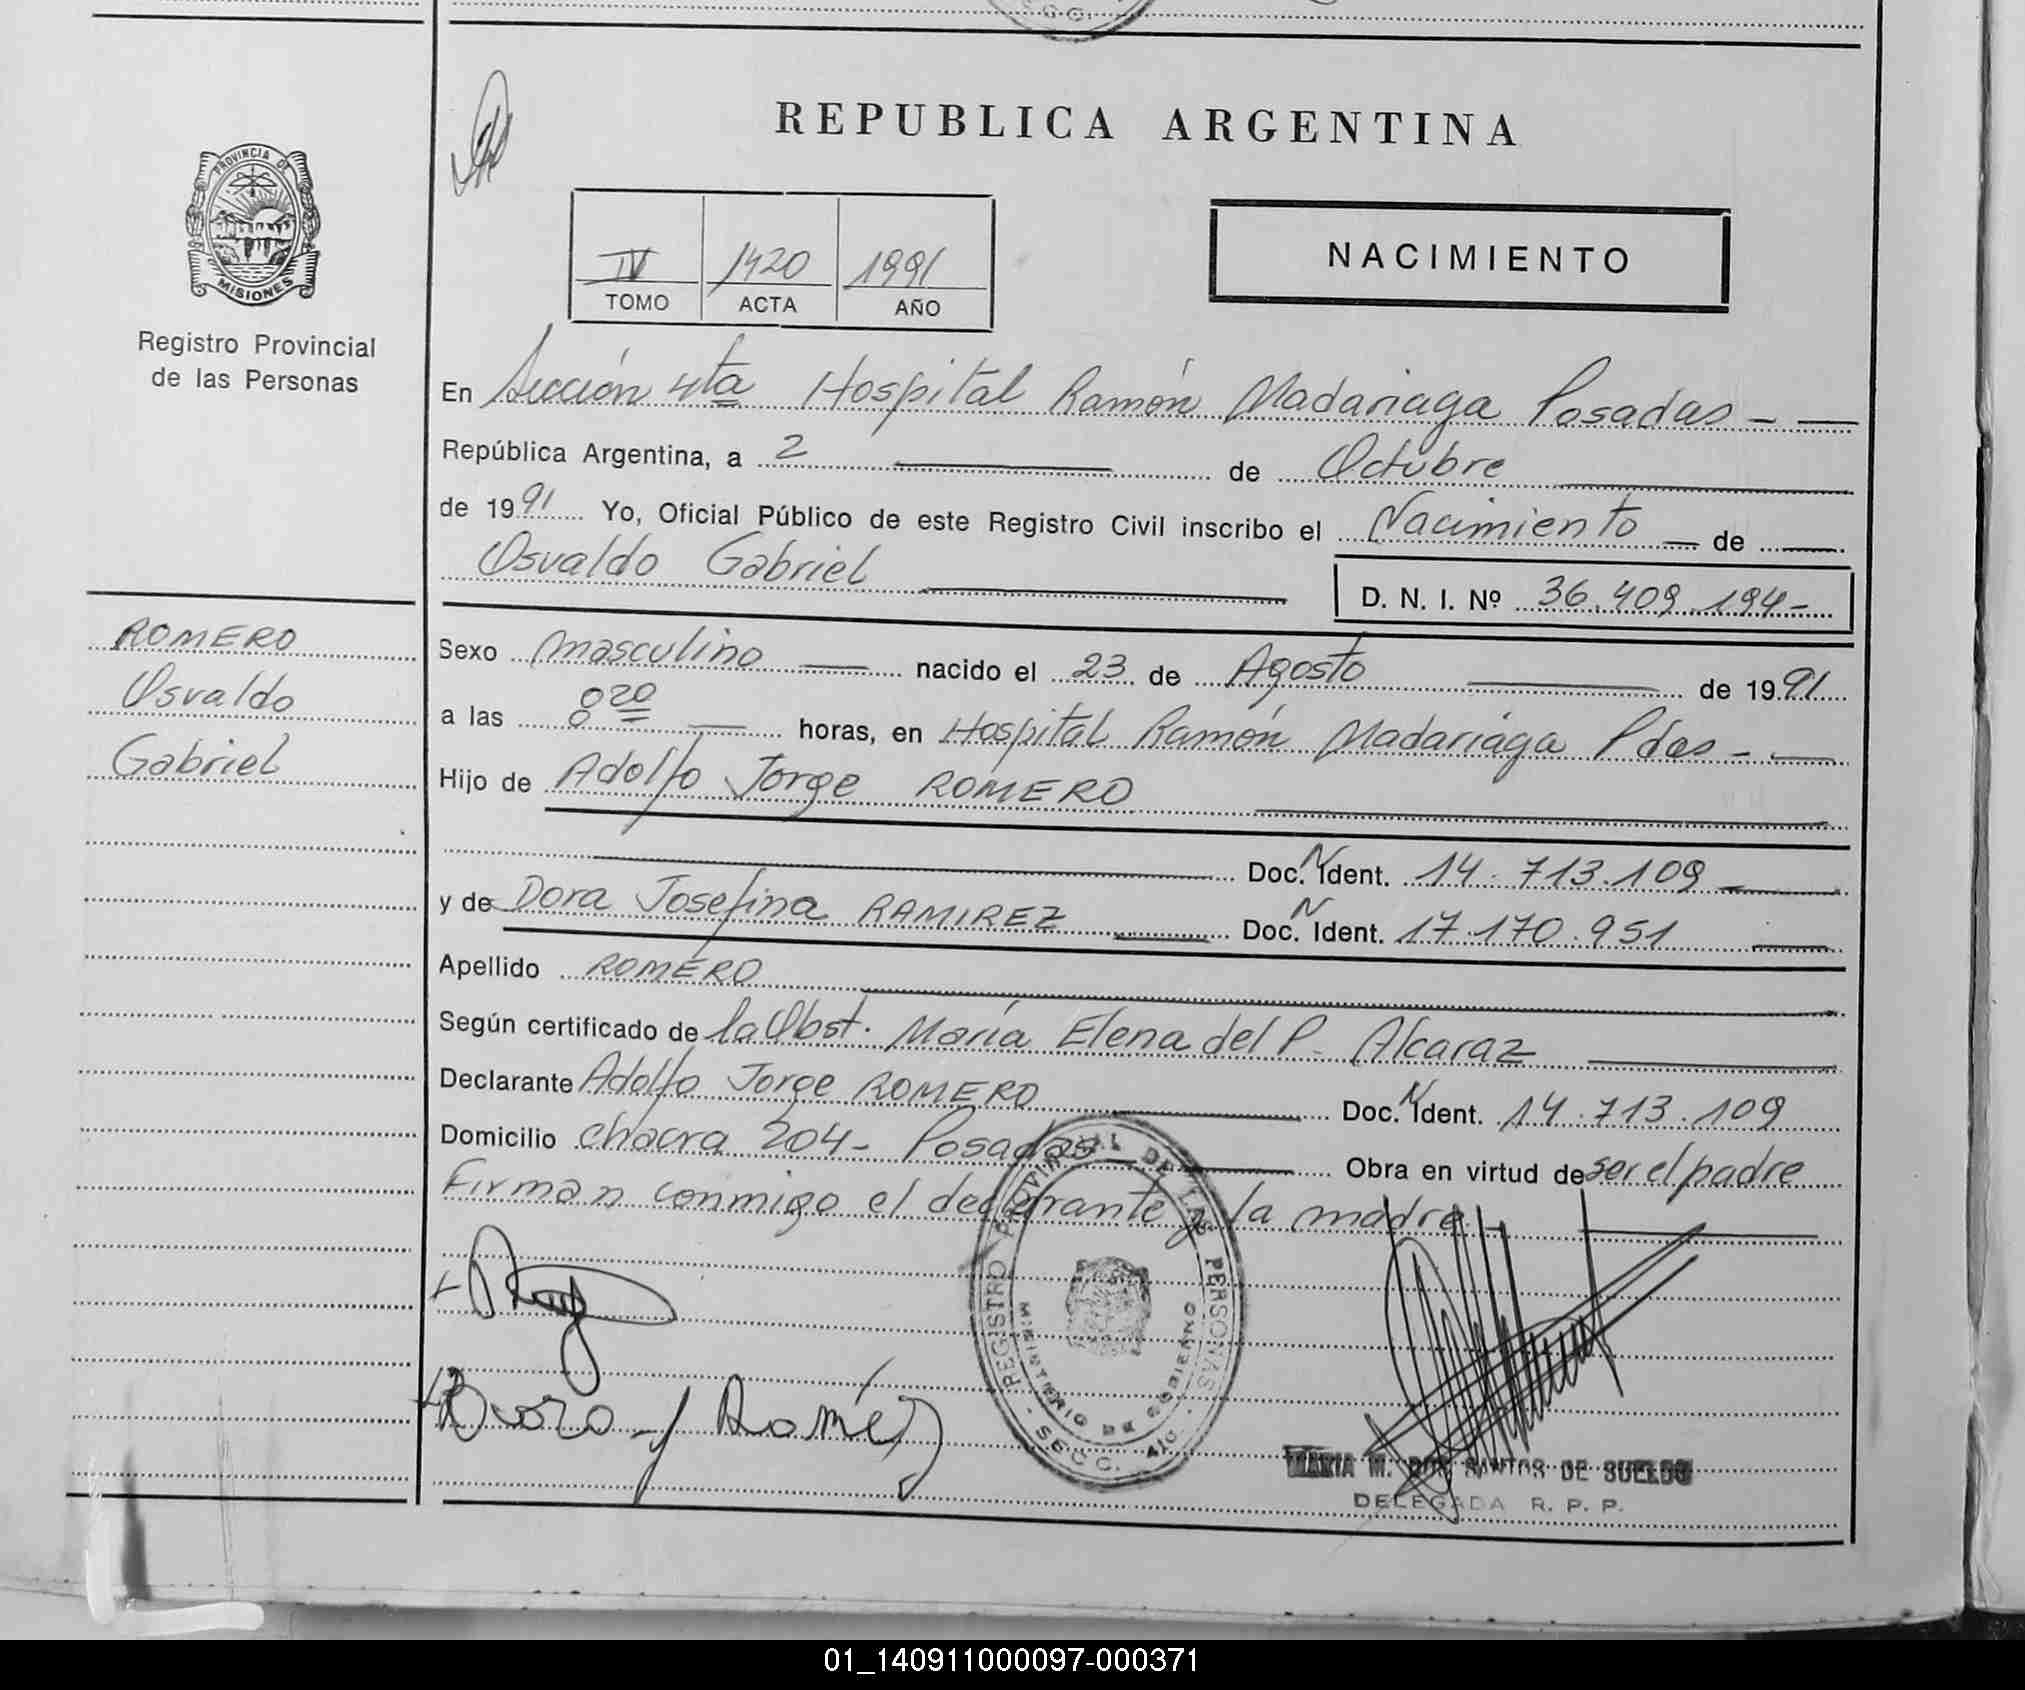 REPUBLICA ARGENTINA
PROVINCIA DE
MISIONES
Registro Provincial
de las Personas
IV 1420 1991
TOMO ACTA AÑO
NACIMIENTO
En Sección 4ta Hospital Ramón Madariaga Posadas - —
República Argentina, a 2 — de Octubre
de 1991 Yo, Oficial Público de este Registro Civil inscribo el Nacimiento — de —
Osvaldo Gabriel —
D. N. I. Nº 36.409.194-
ROMERO
Osvaldo
Gabriel
Sexo masculino — nacido el 23 de Agosto — de 1991
a las 8 20 — horas, en Hospital Ramón Madariaga Pdas - —
Hijo de Adolfo Jorge ROMERO —
Doc. N Ident. 14.713.109 —
y de Dora Josefina RAMIREZ — Doc. N Ident. 17.170.951 —
Apellido ROMERO —
Según certificado de la Obst. María Elena del P. Alcaraz —
Declarante Adolfo Jorge ROMERO — Doc. N Ident. 14.713.109
Domicilio chacra 204- Posadas — Obra en virtud de ser el padre
Firman conmigo el declarante y la madre - —
REGISTRO PROVINCIAL DE LAS PERSONAS
MINISTERIO DE GOBIERNO
SECC. 4
MARIA M. DOS SANTOS DE SUELDO
DELEGADA R. P. P.
01_140911000097-000371